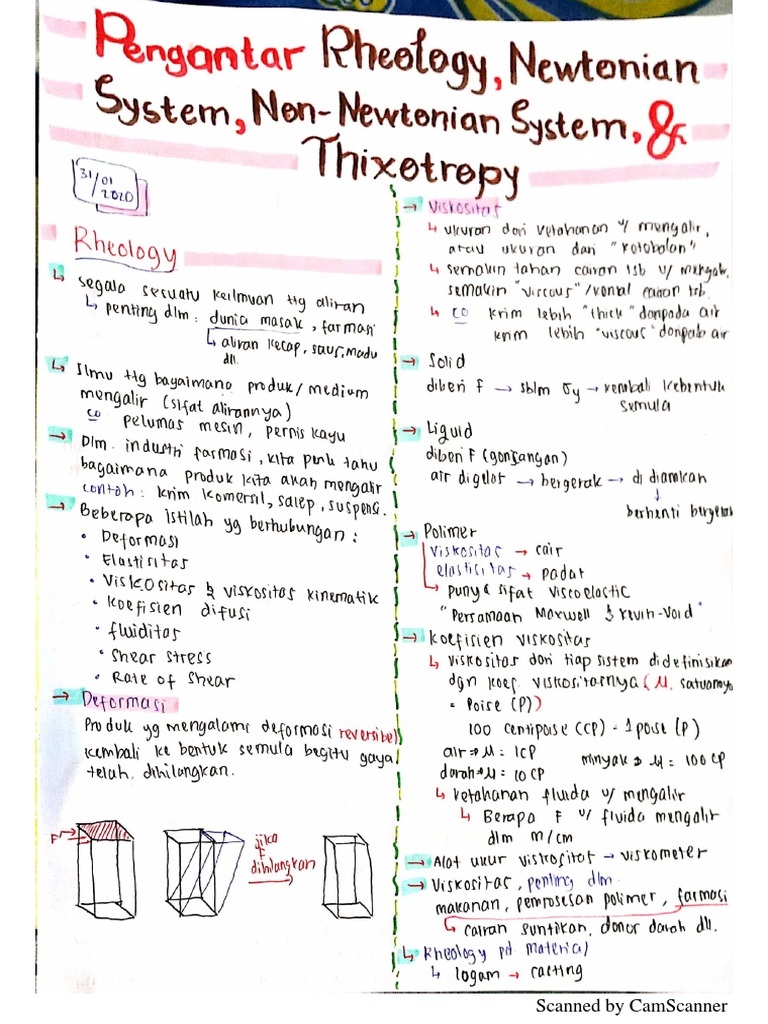 Pengantar Rheology, Newtonian
System, Non-Newtonian System, &
Thixotropy
31/01
2020
Rheology
↳ segala sesuatu keilmuan ttg aliran
↳ penting dlm : dunia masak, farmasi
↳ aliran kecap, saus, madu
dll.
↳ Ilmu ttg bagaimana produk / medium
mengalir (sifat alirannya)
co pelumas mesin, pernis kayu
→ Dlm. industri farmasi, kita perlu tahu
bagaimana produk kita akan mengalir
contoh : krim komersil, salep, suspensi.
→ Beberapa istilah yg berhubungan :
• Deformasi
• Elastisitas
• Viskositas & viskositas kinematik
• Koefisien difusi
• fluiditas
• Shear stress
• Rate of Shear
→ Deformasi
Produk yg mengalami deformasi reversibel
kembali ke bentuk semula begitu gaya
telah dihilangkan.
F →
jika
F
dihilangkan
→ Viskositas
↳ ukuran dari ketahanan u/ mengalir,
atau ukuran dari "ketebalan"
↳ semakin tahan cairan tsb u/ mengalir
semakin "viscous"/kental cairan tsb.
↳ co krim lebih "thick" daripada air
krim lebih "viscous" daripada air
→ Solid
diberi f → sblm σy → kembali kebentuk
semula
→ Liquid
diberi F (gonjangan)
air digelas → bergerak → di diamkan
↓
berhenti bergerak
→ Polimer
viskositas → cair
elastisitas → padat
↳ punya sifat viscoelastic
"Persamaan Maxwell & Kevin-Void"
→ Koefisien viskositas
↳ viskositas dari tiap sistem didefinisikan
dgn koef. viskositasnya (μ. satuannya
= Poise (P))
100 centipoise (CP) = 1 poise (P)
air → μ = 1CP
minyak → μ = 100 CP
darah → μ = 10 CP
↳ ketahanan fluida u/ mengalir
↳ Berapa F u/ fluida mengalir
dlm m/cm
→ Alat ukur viskositas → viskometer
→ Viskositas, penting dlm.
makanan, pemrosesan polimer, farmasi
↳ cairan suntikan, donor darah dll.
↳ Rheology pd material
↳ logam → casting
Scanned by CamScanner